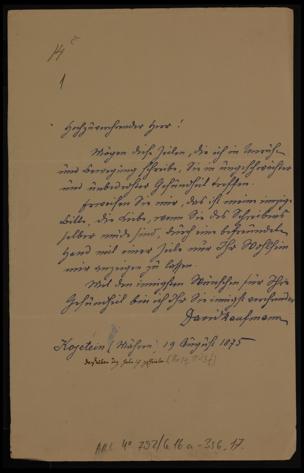 1
Hochzuverehrender Herr!
Mögen diese Zeilen, die ich in Unruhe
und Bewegung schreibe, Sie in ungeschwächter
und unbedrohter Gesundheit treffen.
Erweisen Sie mir, das ist meine innige
Bitte, die Liebe, wenn Sie des Schreibens
selber müde sind, durch eine befreundete
Hand mit einer Zeile nur Ihr Wohlsein
mir anzeigen zu lassen.
Mit den innigsten Wünschen für Ihre
Gesundheit bin ich Ihr Sie innigst verehrender
David Kaufmann
Kojetein (Mähren) 19 August 1875
ARC 4° 792/G 16a - 336, 17.